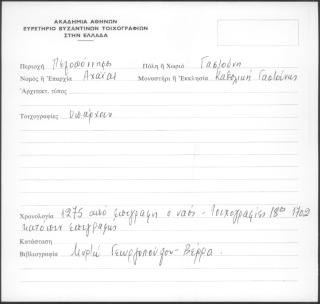 ΑΚΑΔΗΜΙΑ ΑΘΗΝΩΝ
ΕΥΡΕΤΗΡΙΟ ΒΥΖΑΝΤΙΝΩΝ ΤΟΙΧΟΓΡΑΦΙΩΝ
ΣΤΗΝ ΕΛΛΑΔΑ
Περιοχή Πελοπόννησος Πόλη ἤ Χωριό Γαστούνη
Νομός ἤ Ἐπαρχία Αχαΐας Μοναστήρι ἤ Ἐκκλησία Καθολική Γαστούνης
Ἀρχιτεκτ. τύπος
Τοιχογραφίες Υπάρχουν
Χρονολογία 1275 από επιγραφή ο ναός - Τοιχογραφίες 18ου 1702
κατόπιν επιγραφής
Κατάσταση
Βιβλιογραφία Γεωργοπούλου - Βέρρα.